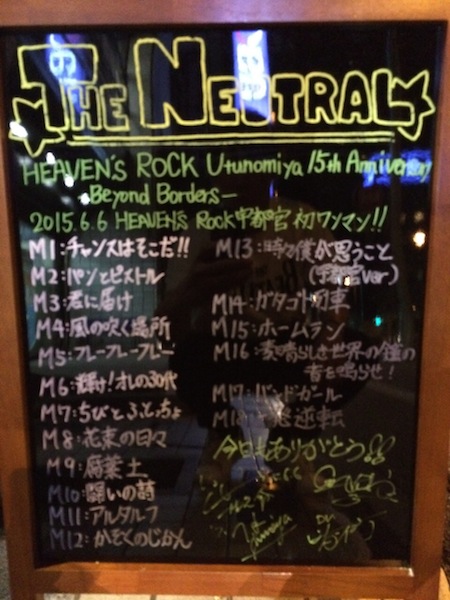 THE NEUTRAL
HEAVEN'S ROCK Utunomiya 15th Anniversary
-Beyond Borders-
2015.6.6 HEAVEN'S ROCK宇都宮初ワンマン!!
M1:チャンスはそこだ!!
M2:パンとピストル
M3:君に届け
M4:風の吹く場所
M5:フレーフレーフレー
M6:輝け!オレの30代
M7:ちびとふとっちょ
M8:花束の日々
M9:腐葉土
M10:闘いの詩
M11:アルタルフ
M12:かぞくのじかん
M13:時々僕が思うこと
(宇都宮ver)
M14:ガタゴト列車
M15:ホームラン
M16:素晴らしき世界の鐘の
音を鳴らせ!
M17:バッドガール
M18:一発逆転
今日もありがとう